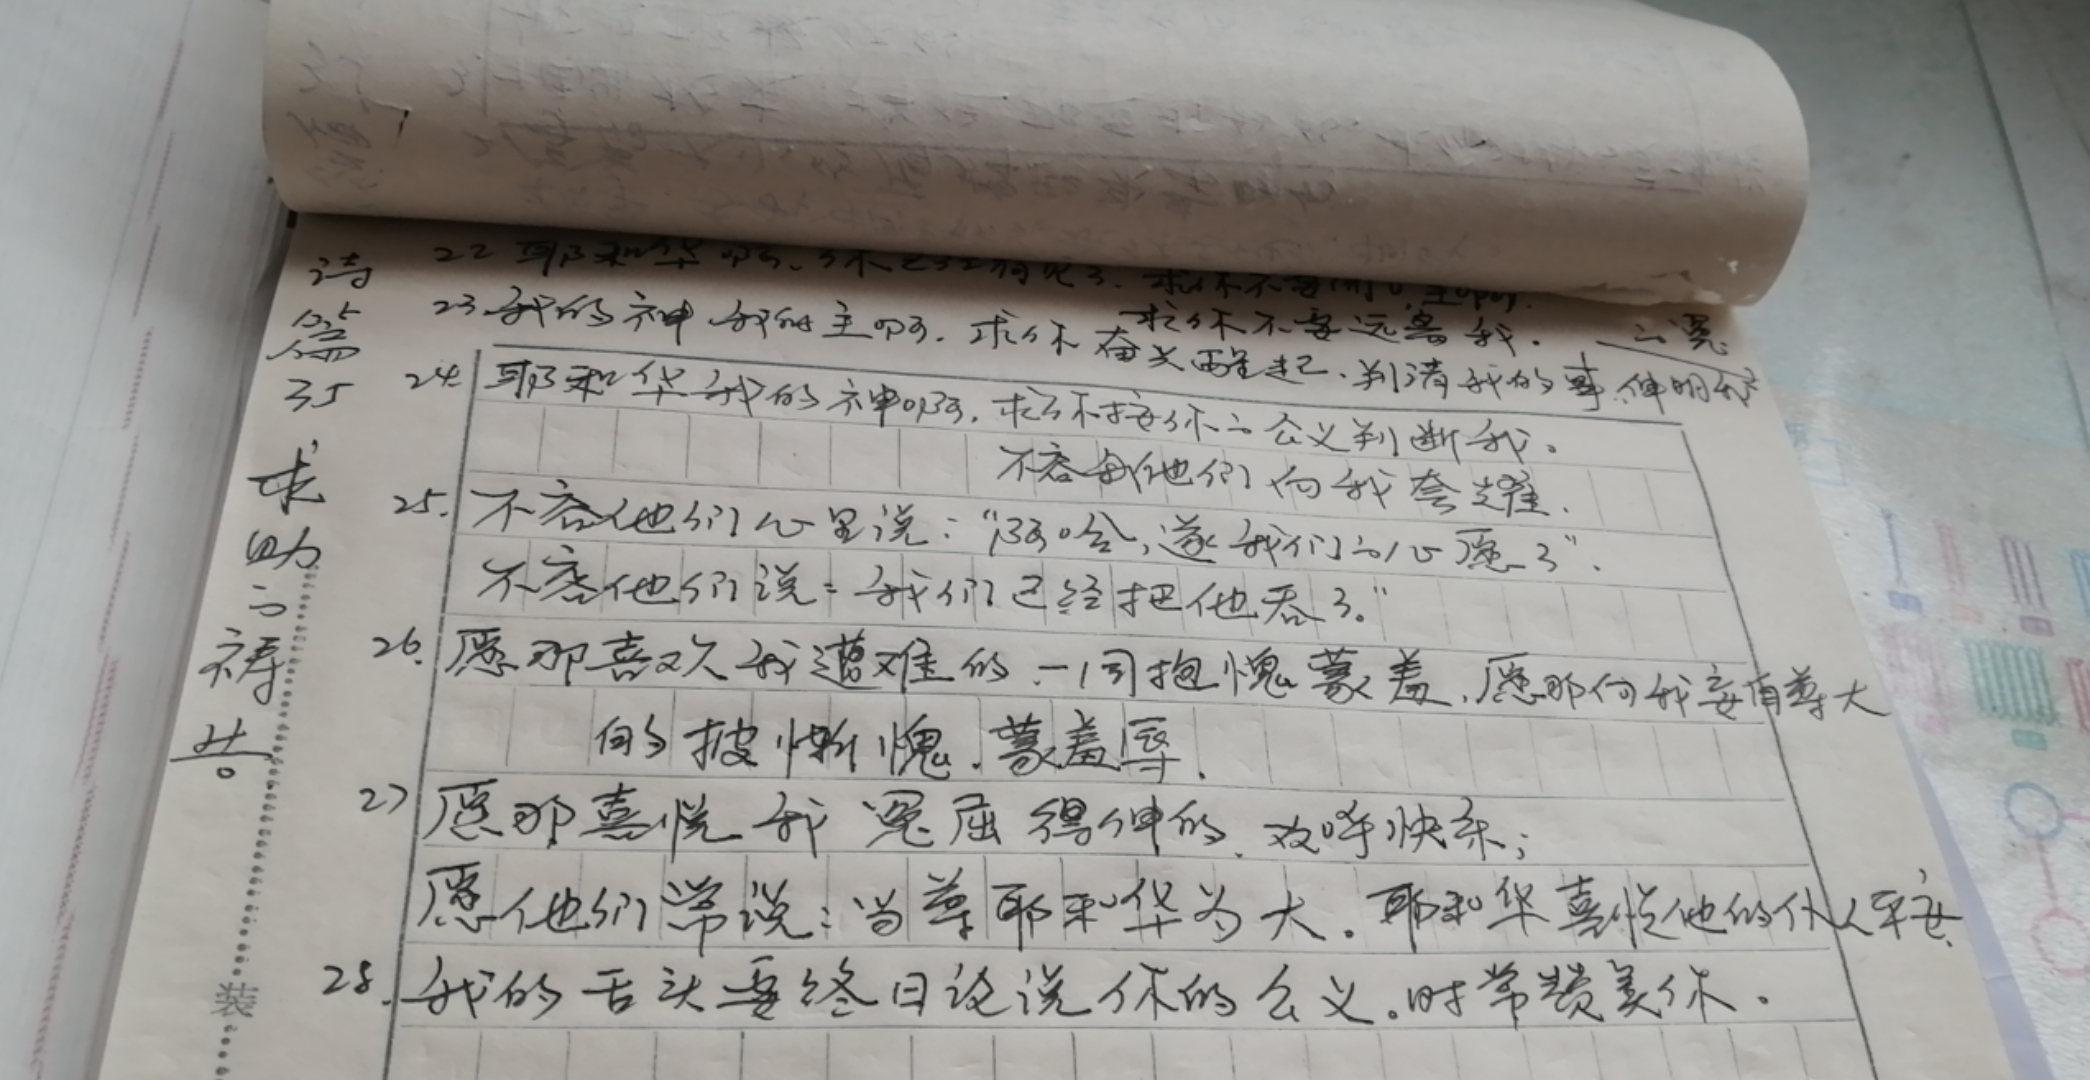 诗篇35
求助的祷告
22 耶和华啊、你已经看见了. 求你不要闭口,主啊,
求你不要远离我.
23.我的神 我的主啊. 求你奋兴醒起.判清我的事,伸明我
的冤
24. 耶和华我的神啊,求你按你的公义判断我。
不容他们向我夸耀.
25. 不容他们心里说:“阿哈,遂我们的心愿了”.
不容他们说:我们已经把他吞了。”
26. 愿那喜欢我遭难的一同抱愧蒙羞,愿那向我妄自尊大
的披惭愧.蒙羞辱.
27 愿那喜悦我冤屈得伸的、欢呼快乐;
愿他们常说:当尊耶和华为大。耶和华喜悦他的仆人平安.
28. 我的舌头要终日论说你的公义。时常赞美你.
装